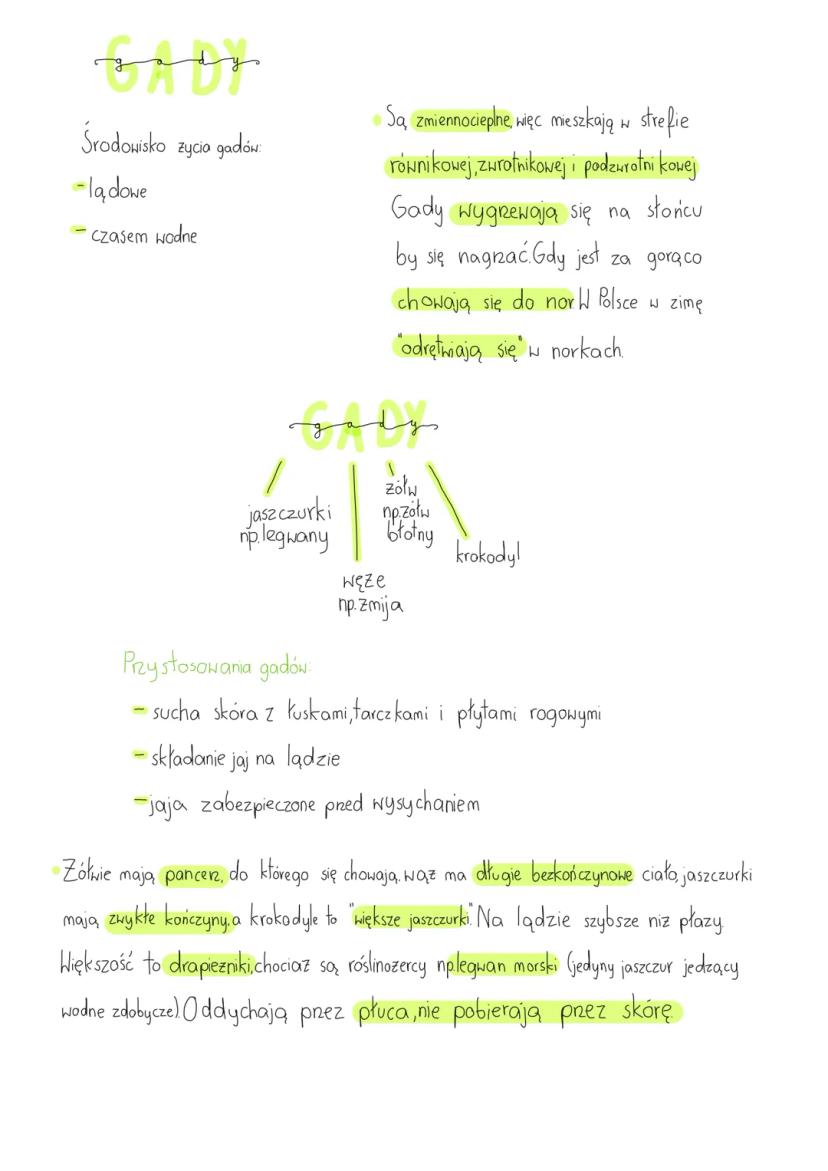 GADY
gady
Środowisko życia gadów:
- lądowe
- czasem wodne
• Są zmiennocieplne, więc mieszkają w strefie
równikowej, zwrotnikowej i podzwrotnikowej
Gady wygrzewają się na słońcu
by się nagrzać. Gdy jest za gorąco
chowają się do nor W Polsce w zimę
"odrętwiają się" w norkach.
GADY
gady
jaszczurki
np. legwany
węże
np. żmija
żółw
np. żółw
błotny
krokodyl
Przystosowania gadów:
- sucha skóra z łuskami, tarczkami i płytami rogowymi
- składanie jaj na lądzie
- jaja zabezpieczone przed wysychaniem
• Żółwie mają pancerz, do którego się chowają. wąż ma długie bezkończynowe ciało, jaszczurki
mają zwykłe kończyny, a krokodyle to "większe jaszczurki". Na lądzie szybsze niż płazy.
Większość to drapieżniki, chociaż są roślinożercy np. legwan morski (jedyny jaszczur jedzący
wodne zdobycze). Oddychają przez płuca, nie pobierają przez skórę.